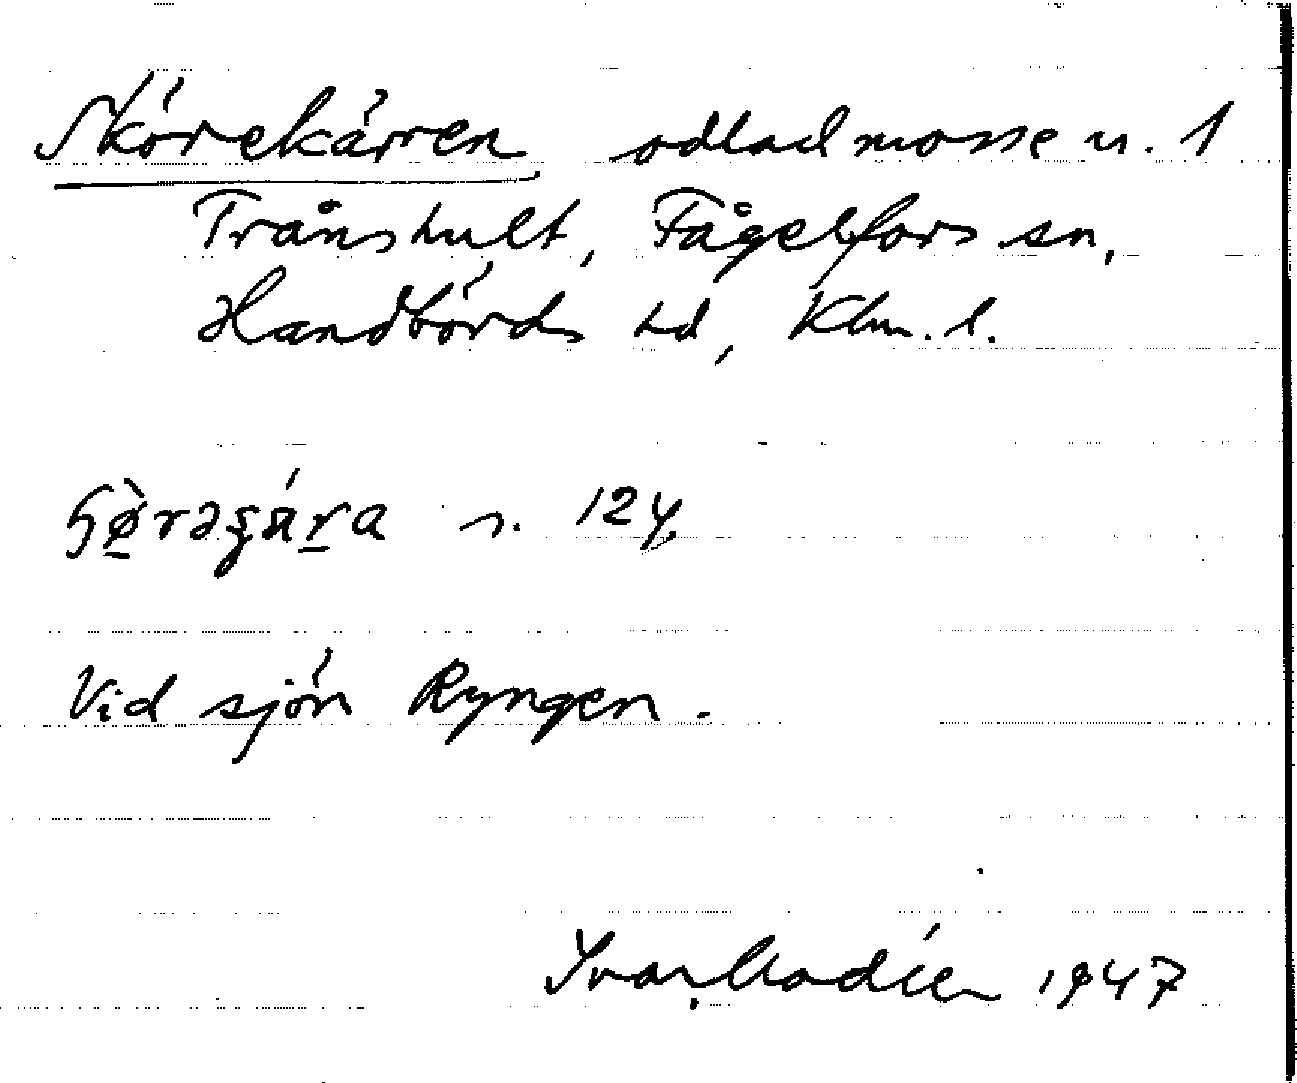 Skörekärren odlad mosse n. 1
Trånshult, Fågelfors sn,
Handbörds hd, Klm. l.
124
Vid sjön Ryngen.
Ivar Modéer 1947